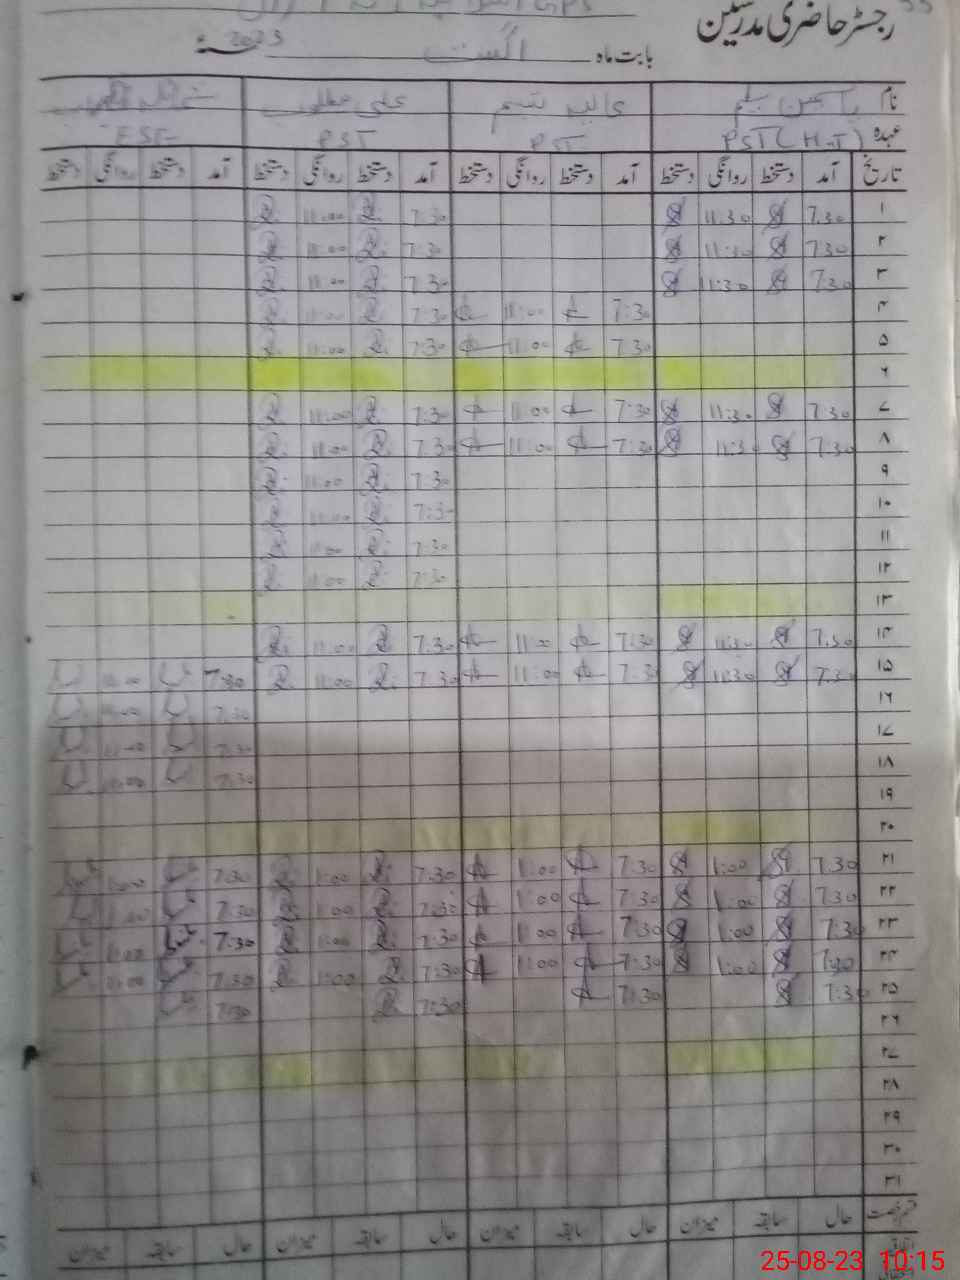 رجسٹر حاضری مدرسین
بابت ماہ اگست 2023ء
نام یاسمین بیگم عالیہ تبسم علی
عہدہ PST (H-T) PST PST EST
تاریخ آمد دستخط روانگی دستخط آمد دستخط روانگی دستخط آمد دستخط روانگی دستخط آمد دستخط روانگی دستخط
۱ 7.30 11:30 7:30 11:00
۲ 7:30 11:30 7:30 11:00
۳ 7:30 11:30 7:30 11:00
۴ 7:30 11:00 7:30 11:00
۵ 7.30 11:00 7:30 11:00
۶
۷ 7.30 11:30 7:30 11:00 7:30 11:00
۸ 7:30 11:30 7:30 11:00 7:30 11:00
۹ 7:30 11:00
۱۰ 7:30 11:00
۱۱ 7:30 11:00
۱۲ 7:30 11:00
۱۳
۱۴ 7.30 11:30 7:30 11:00 7:30 11:00
۱۵ 7:30 11:30 7:30 11:00 7:30 11:00 7:30 11:00
۱۶ 7:30 11:00
۱۷ 7:30 11:00
۱۸ 7:30 11:00
۱۹
۲۰
۲۱ 7.30 1:00 7:30 1:00 7:30 1:00 7:30 1:00
۲۲ 7:30 1:00 7:30 1:00 7:30 1:00 7:30 1:00
۲۳ 7:30 1:00 7:30 1:00 7:30 1:00 7:30 1:00
۲۴ 7:30 1:00 7:30 1:00 7:30 1:00 7:30 1:00
۲۵ 7:30 7:30 7:30 7:30
۲۶
۲۷
۲۸
۲۹
۳۰
۳۱
قسم رخصت حال سابقہ میزان حال سابقہ میزان حال سابقہ میزان حال سابقہ میزان
25-08-23 10:15